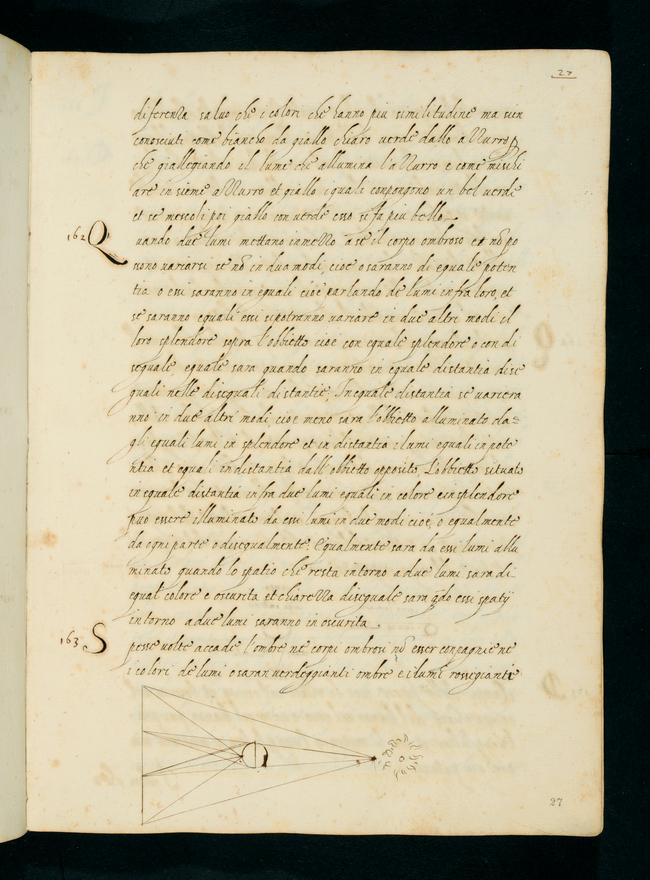 27
diferenza saluo che i colori che hanno piu similitudine ma sien
conosciuti come biancho da giallo chiaro uerde dallo azzurro p
che giallegiando il lume che allumina l'azzurro e come mischi
are in sieme azzurro et giallo i quali conpongono un bel uerde
et se mescoli poi giallo con uerde esso si fa piu bello
162 Quando due lumi mettano in mezzo a se il corpo ombroso et nō po
sono uariarsi se nō in dua modi, cioe o saranno di equale poten
tia o essi saranno in equali cioe parlando de lumi infra loro, et
se saranno equali essi si potranno uariare in due altri modi il
loro splendore sopra l'obbietto cioe con equale splendore o con di
sequale equale sara quando saranno in equale distantia dise
quali nelle disequali distantie, In equale distantia se uariera
nno in due altri modi cioe meno sara l'obbietto alluminato da
gli equali lumi in splendore et in distantia i lumi equali in pote
ntia et equali in distantia dall'obbietto opposito, L'obbietto situato
in equale distantia infra due lumi equali in colore e in splendore
puo essere illuminato da essi lumi in due modi cioe, o equalmente
da ogni parte o disequalmente. Equalmente sara da essi lumi allu
minato quando lo spatio che resta intorno a due lumi sara di
equal colore e oscurita et chiarezza disequale sara qdo essi spatij
intorno a due lumi saranno in oscurita
163 Spesse uolte accade l'ombre ne corpi ombrosi nō esser conpagnie ne
i colori de lumi o saran uerdeggianti ombre e i lumi rossegianti
27